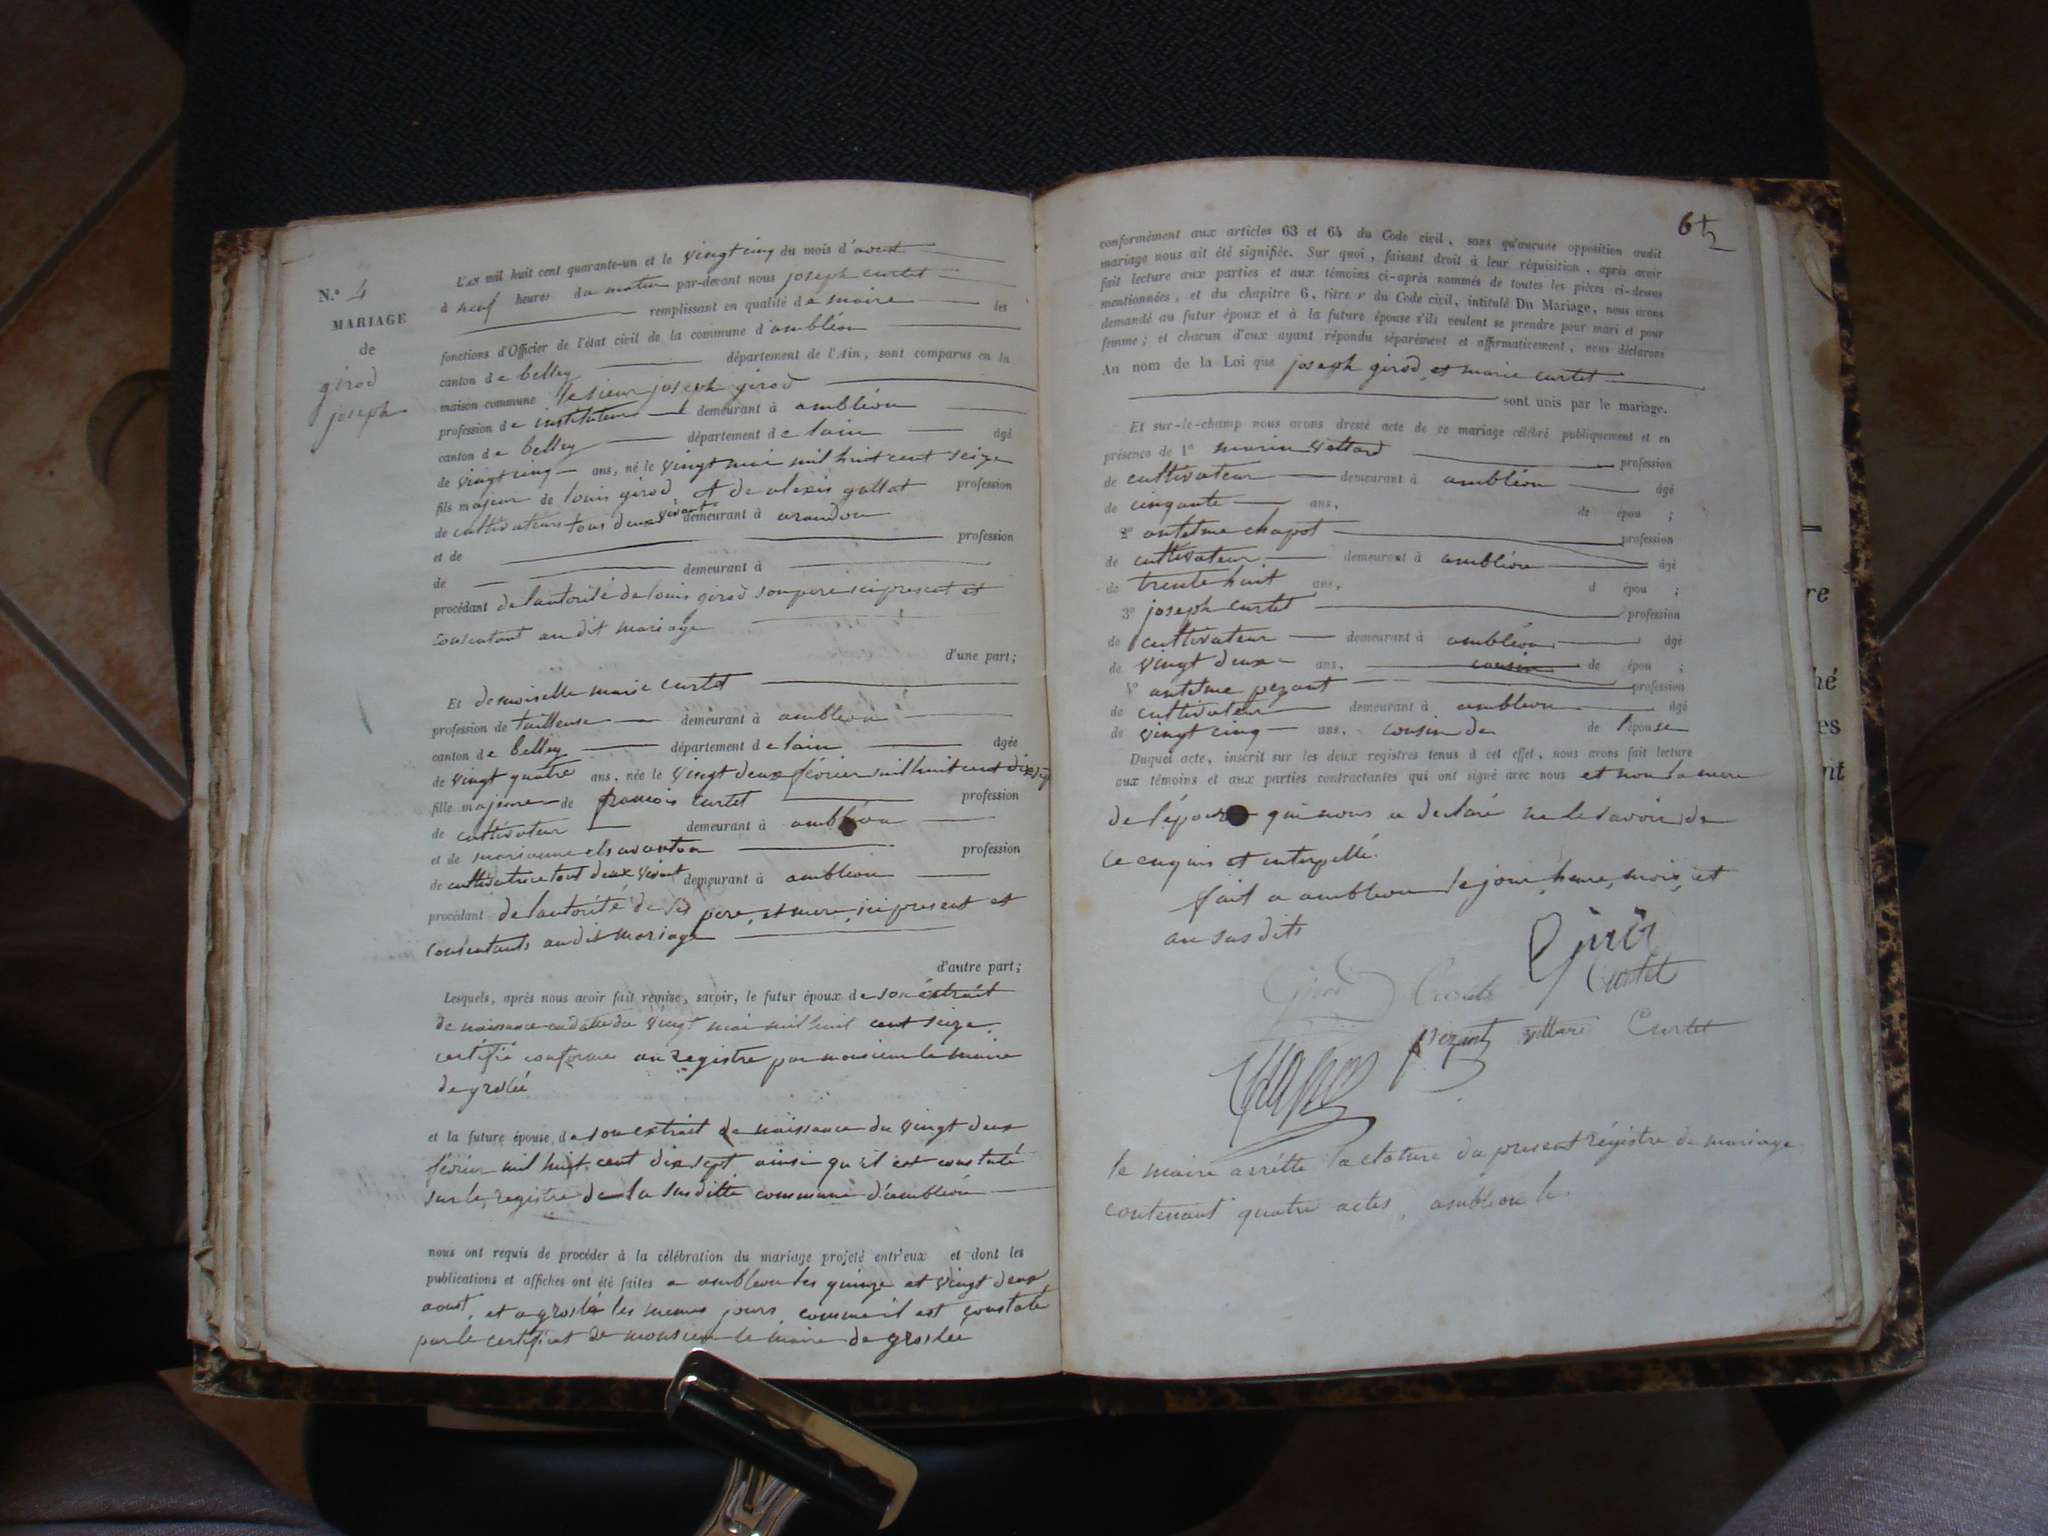 N.° 4
MARIAGE
de
girod
joseph
L'an mil huit cent quarante-un et le vingt cinq du mois d'aout
à neuf heures du matin par-devant nous joseph curtet
remplissant en qualité de maire les
fonctions d'Officier de l'état civil de la commune d'ambléon
canton de belley département de l'Ain, sont comparus en la
maison commune le sieur joseph girod
profession de instituteur demeurant à ambléon
canton de belley département de lain âgé
de vingt cinq ans, né le vingt mai mil huit cent seize
fils majeur de louis girod, et de alexis gallat profession
de cultivateurs tous deux vivants demeurant à arandon
et de profession
de demeurant à
procédant de lautorité de louis girod son pere ici present et
consentant au dit mariage
d'une part;
Et demoiselle marie curtet
profession de tailleuse demeurant à ambleon
canton de belley département de lain âgée
de vingt quatre ans, née le vingt deux février mil huit cent dix sept
fille majeure de françois curtet profession
de cultivateur demeurant à ambléon
et de marianne profession
de cultivatrice tout deux vivant demeurant à ambléon
procédant de lautorité de ses pere, et mere, ici present et
consentants au dit mariage
d'autre part;
Lesquels, après nous avoir fait remise, savoir, le futur époux de son extrait
de naissance en date du vingt mai mil huit cent seize
certifié conforme au registre par monsieur le maire
de groslée
et la future épouse, de son extrait de naissance du vingt deux
février mil huit cent dix sept ainsi qu'il est constaté
sur le registre de la susditte commune d'ambléon
nous ont requis de procéder à la célébration du mariage projeté entr'eux et dont les
publications et affiches ont été faites a ambleon les quinze et vingt deux
aout, et a groslée les memes jours, comme il est constaté
par le certificat de monsieur le maire de groslée
61/2
conformément aux articles 63 et 64 du Code civil, sans qu'aucune opposition audit
mariage nous ait été signifiée. Sur quoi, faisant droit à leur réquisition, après avoir
fait lecture aux parties et aux témoins ci-après nommés de toutes les pièces ci-dessus
mentionnées, et du chapitre 6, titre v du Code civil, intitulé Du Mariage, nous avons
demandé au futur époux et à la future épouse s'ils veulent se prendre pour mari et pour
femme; et chacun d'eux ayant répondu séparément et affirmativement, nous déclarons
Au nom de la Loi que joseph girod, et marie curtet
sont unis par le mariage.
Et sur-le-champ nous avons dressé acte de ce mariage célébré publiquement et en
présence de 1° marin vettard profession
de cultivateur demeurant à ambléon âgé
de cinqante ans, de épou ;
2° antelme chapot profession
de cultivateur demeurant à ambléon âgé
de trente huit ans, d épou ;
3° joseph curtet profession
de cultivateur demeurant à ambléon âgé
de vingt deux ans, cousin de épou ;
4° antelme pezant profession
de cultivateur demeurant à ambleon âgé
de vingt cinq ans, cousin de de l'épouse
Duquel acte, inscrit sur les deux registres tenus à cet effet, nous avons fait lecture
aux témoins et aux parties contractantes qui ont signé avec nous et non la mere
de l'épouse qui nous a declaré ne le savoir de
ce enquis et interpellé.
fait a ambleon le jour, heure, mois, et
an susdits
Girod
Girod Curtet Curtet
Pezant vettard Curtet
Chapot
le maire arrétte la cloture du present régistre de mariage
contenant quatre actes, ambléon le